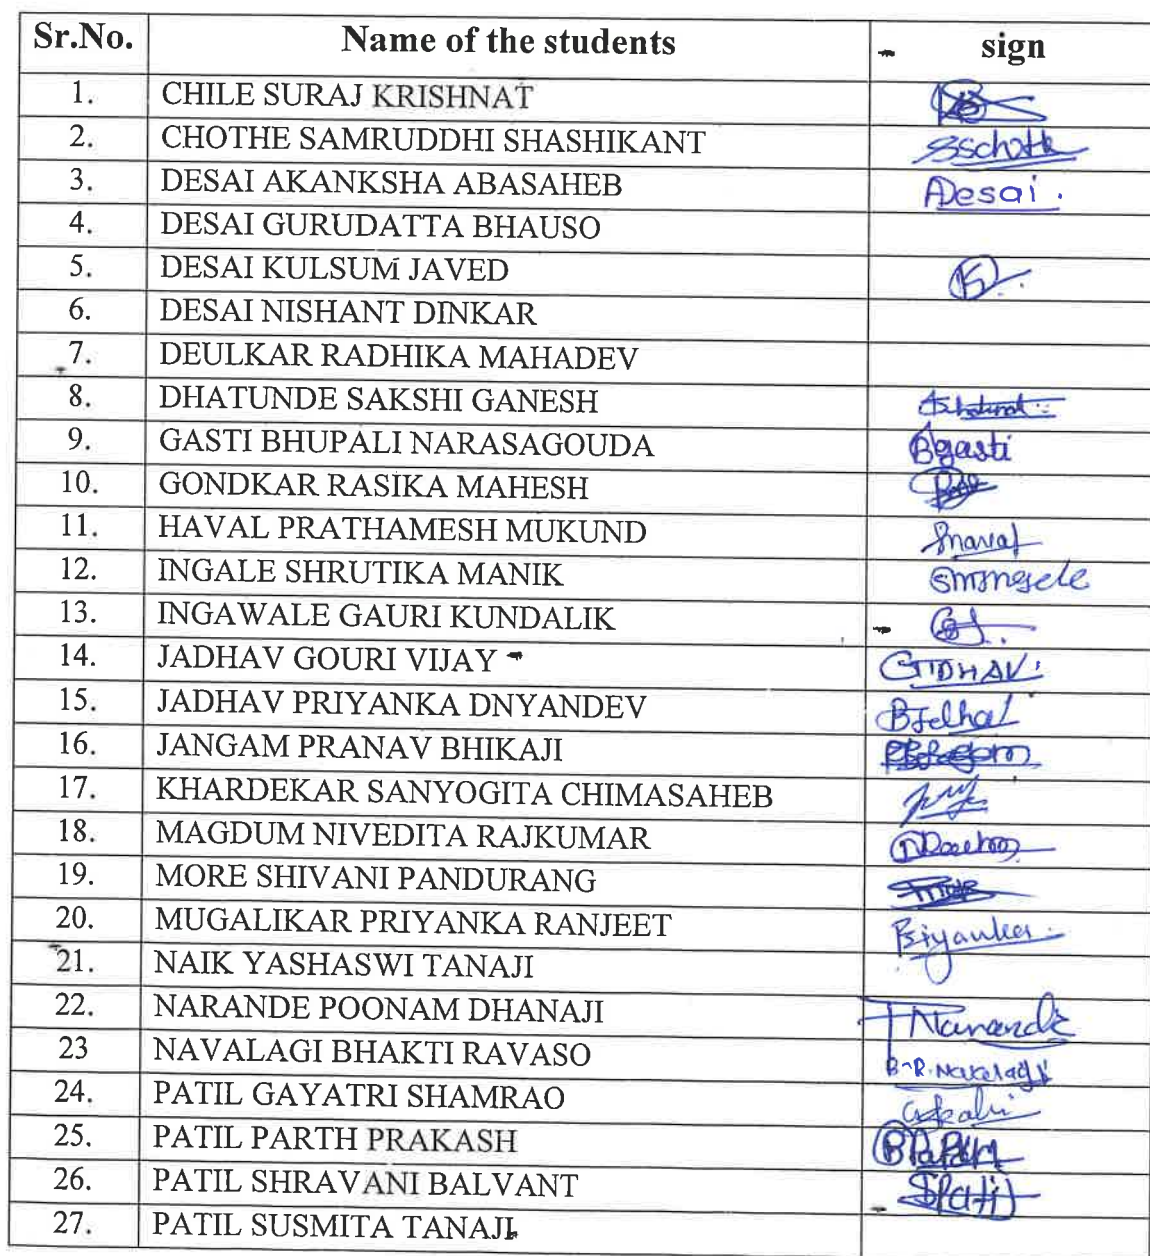 Sr.No. Name of the students sign
1. CHILE SURAJ KRISHNAT
2. CHOTHE SAMRUDDHI SHASHIKANT SSchothe
3. DESAI AKANKSHA ABASAHEB ADesai.
4. DESAI GURUDATTA BHAUSO
5. DESAI KULSUM JAVED
6. DESAI NISHANT DINKAR
7. DEULKAR RADHIKA MAHADEV
8. DHATUNDE SAKSHI GANESH
9. GASTI BHUPALI NARASAGOUDA Bgasti
10. GONDKAR RASIKA MAHESH
11. HAVAL PRATHAMESH MUKUND
12. INGALE SHRUTIKA MANIK
13. INGAWALE GAURI KUNDALIK
14. JADHAV GOURI VIJAY
15. JADHAV PRIYANKA DNYANDEV
16. JANGAM PRANAV BHIKAJI
17. KHARDEKAR SANYOGITA CHIMASAHEB
18. MAGDUM NIVEDITA RAJKUMAR
19. MORE SHIVANI PANDURANG
20. MUGALIKAR PRIYANKA RANJEET Priyanka
21. NAIK YASHASWI TANAJI
22. NARANDE POONAM DHANAJI Narande
23 NAVALAGI BHAKTI RAVASO B.R.Navalagi
24. PATIL GAYATRI SHAMRAO
25. PATIL PARTH PRAKASH
26. PATIL SHRAVANI BALVANT SPatil
27. PATIL SUSMITA TANAJI